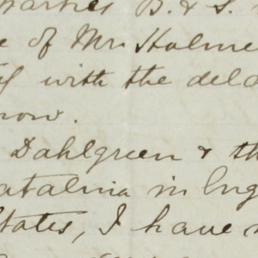 B. & S.
e of Mr. Holme
with the dela
now.
Dahlgreen & th
atalina in Eng
States, I have